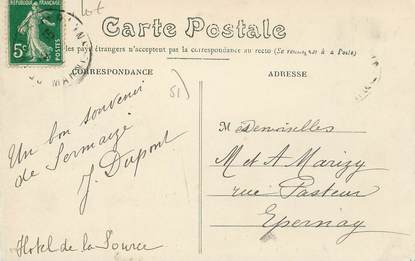 lot
Carte Postale
les pays étrangers n'acceptent pas la correspondance au recto (Se renseigner à la Poste)
CORRESPONDANCE
ADRESSE
5c
POSTES
51)
Un bon souvenir
de Sermaize
J. Dupont
Hotel de la Source
Mesdemoiselles
M et A Marizy
rue Pasteur
Epernay